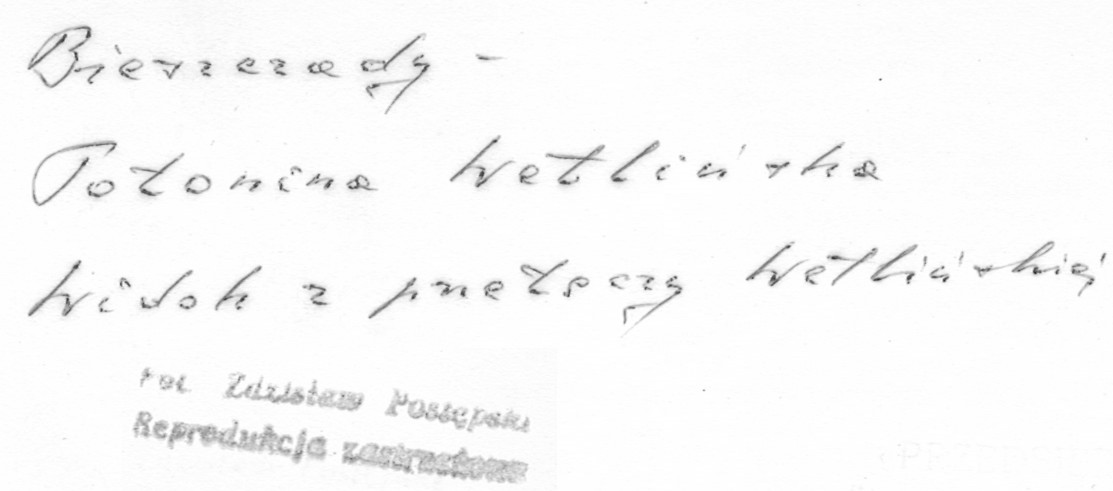 Bieszczady -
Połonina Wetlińska
Widok z przełęczy Wetlińskiej
Fot. Zdzisław Postępski
Reprodukcja zastrzeżona